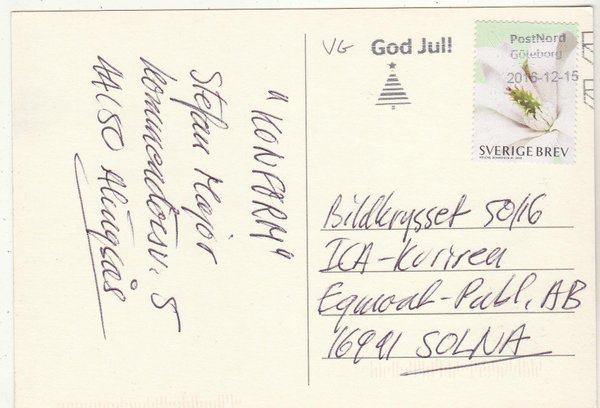 "KONFORM"
Stefan Major
Kommendörsv. 5
44150 Alingsås
VG
God Jul!
PostNord
Göteborg
2016-12-15
SVERIGE BREV
Bildkrysset 50/16
ICA-Kuriren
Egmont-Publ, AB
16991 SOLNA